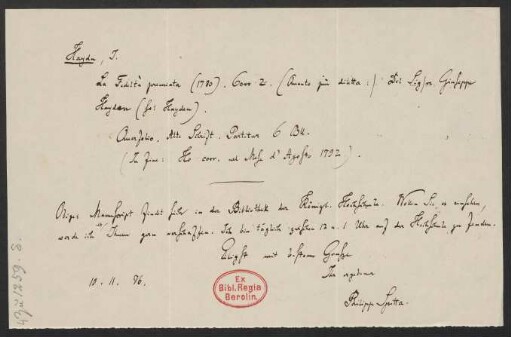 Haydn, J.
La Fedeltà premiata (1780). Coro 2. (Quanto più diletta :/) Del Sigr Giuseppe
Haydn (sic: Hayden).
Querfolio. Alte Schrift. Partitur 6 Bll.
(In fine: Ho corr. nel Mese d'Agosto 1792).
Obiges Manuscript findet sich in der Bibliothek der Königl. Hochschule. Wollen Sie es einsehen,
werde ich es Ihnen gern verschaffen. Ich bin täglich zwischen 12 u. 1 Uhr auf der Hochschule zu finden.
mit bestem Grusse
Ihr ergebener
Philipp Spitta.
10. 11. 86.
Ex
Bibl. Regia
Berolin.